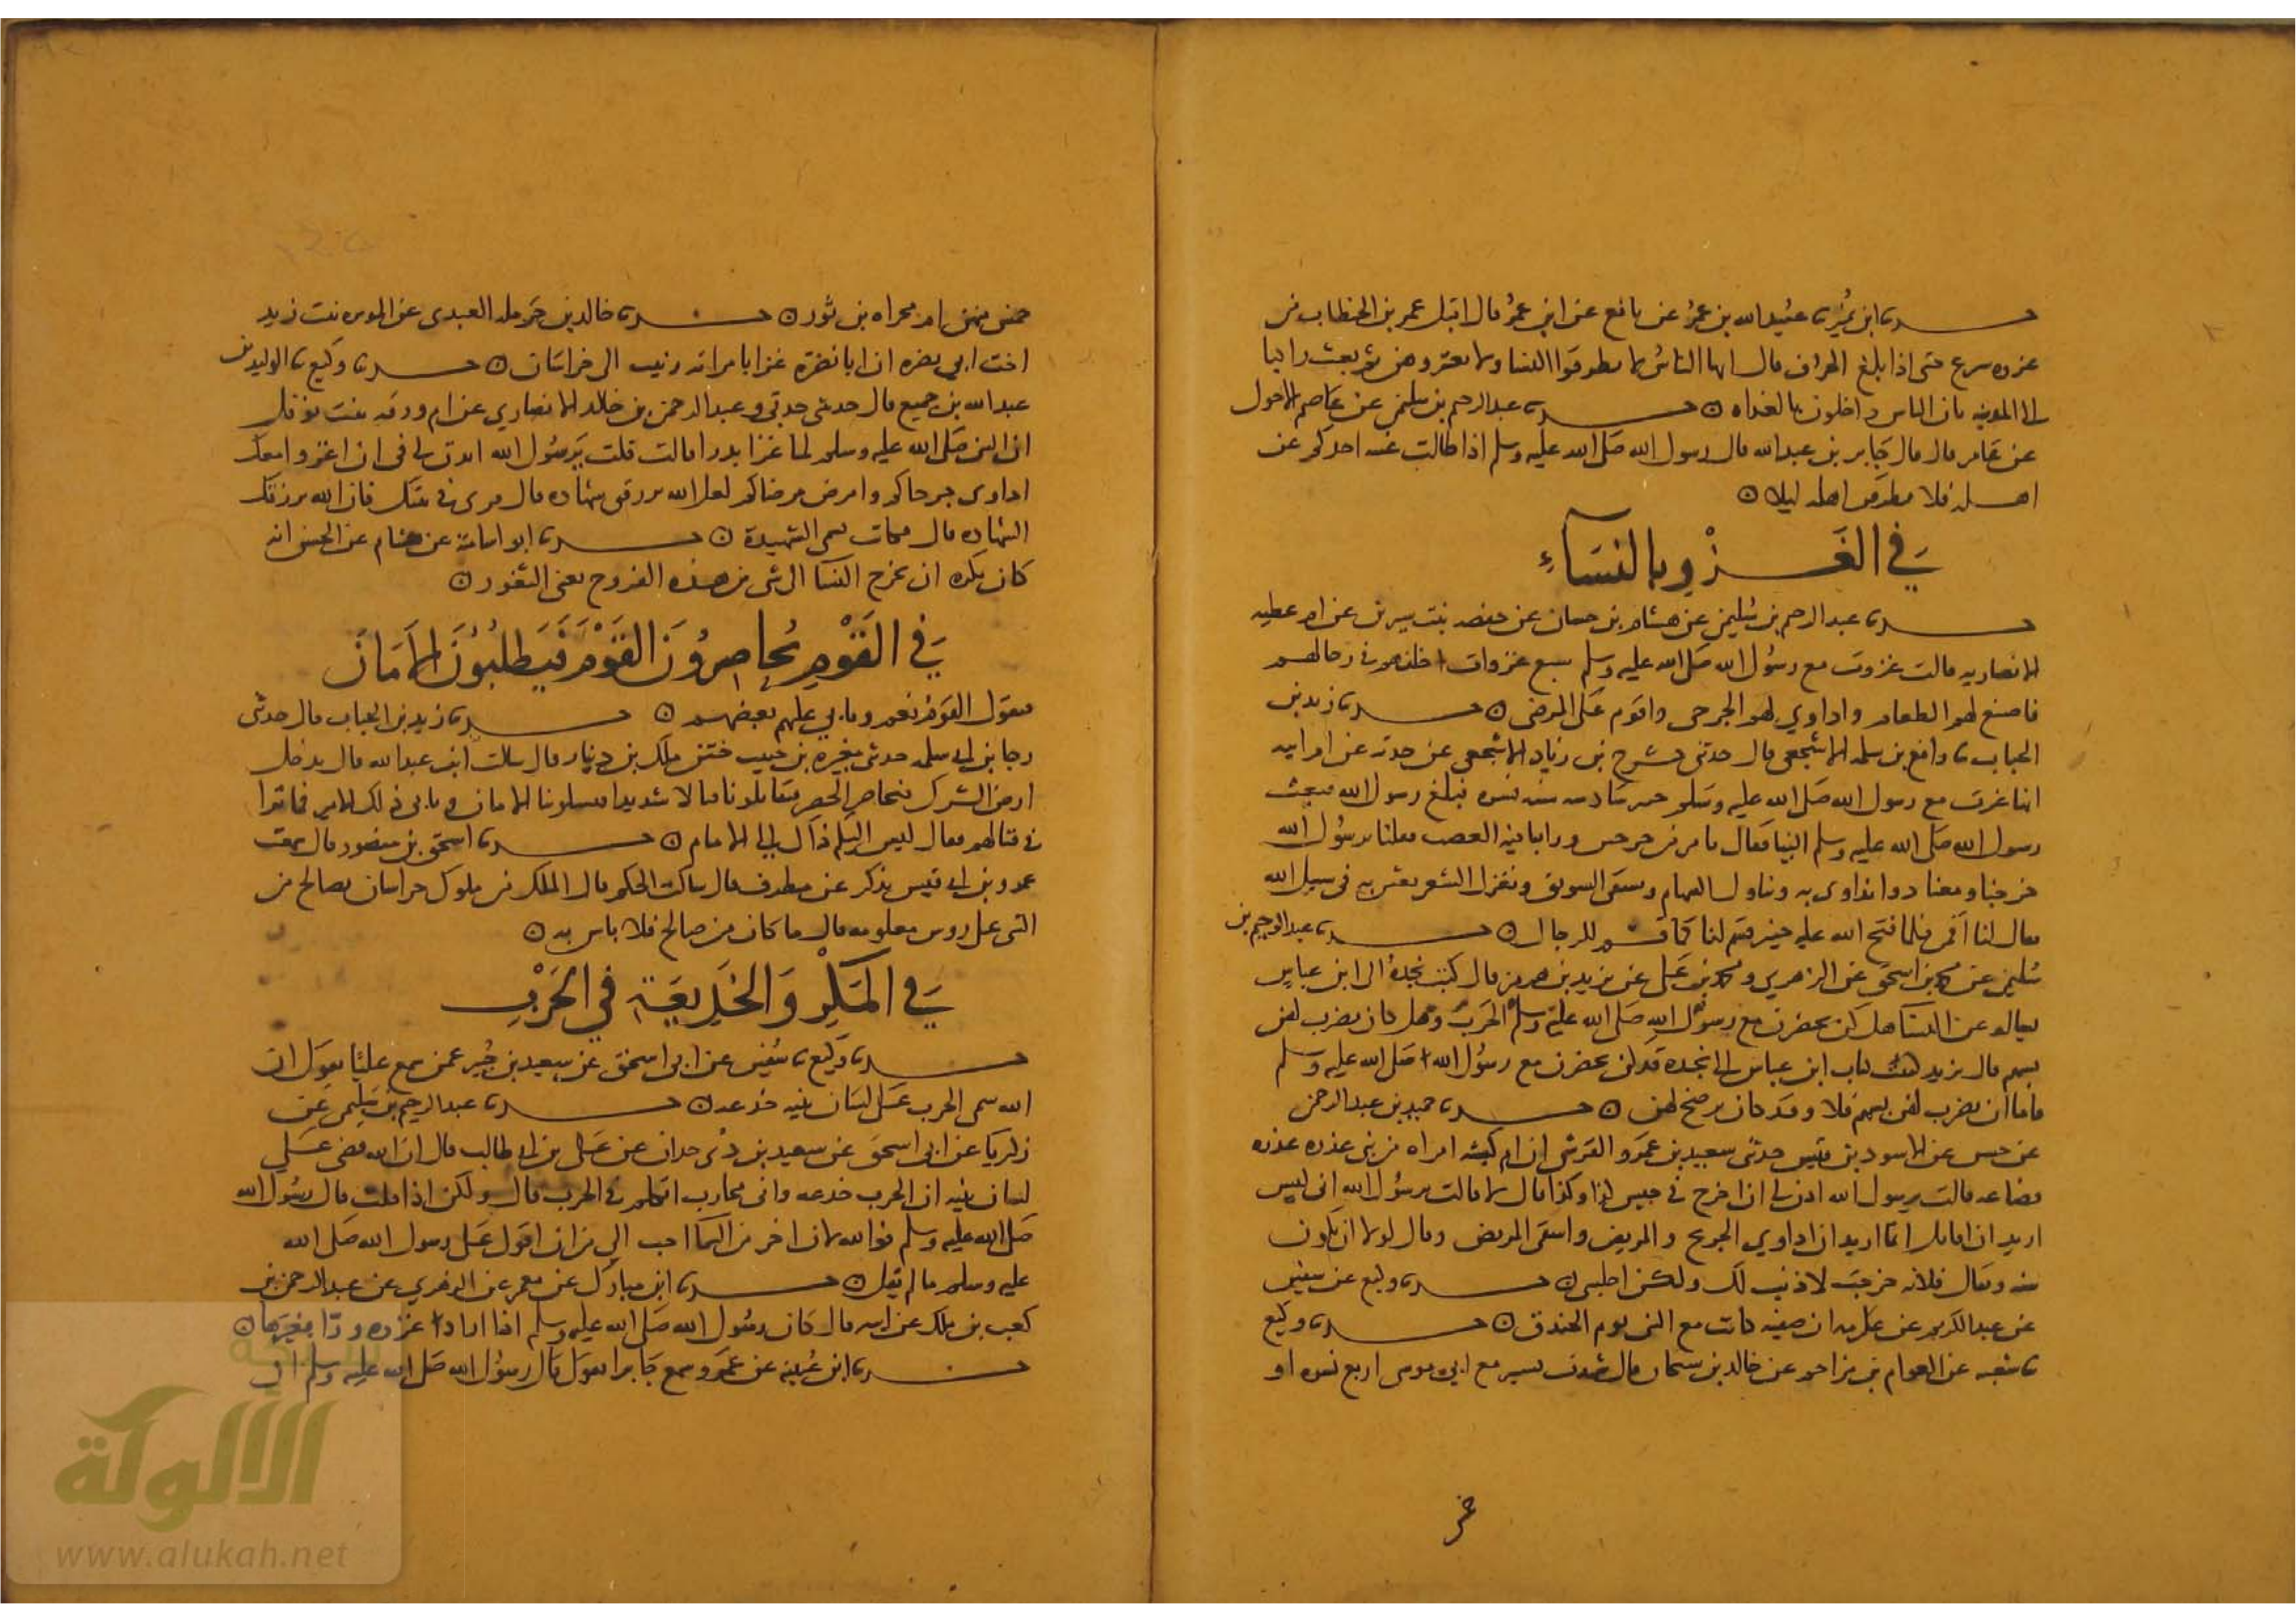 حدثنا ابن نمير نا عبيد الله بن عمر عن نافع عن ابن عمر قال اقبل عمر بن الخطاب من
غزوه سرع حتى اذا بلغ الجرف قال ايها الناس لا تطرقوا النسا ولا تغتروهن ثم بعث راكبا
الى المدينه بان الناس داخلون بالغداه حدثنا عبد الرحيم بن سليمن عن عاصم الاحول
عن عامر قال قال جابر بن عبد الله قال رسول الله صلى الله عليه وسلم اذا طالت غيبه احدكم عن
اهله فلا يطرقن اهله ليلا
في الغزو بالنساء
حدثنا عبد الرحيم بن سليمن عن هشام بن حسان عن حفصه بنت سيرين عن ام عطيه
الانصاريه قالت غزوت مع رسول الله صلى الله عليه وسلم سبع غزوات اخلفهم في رحالهم
فاصنع لهم الطعام واداوي لهم الجرحى واقوم على المرضى حدثنا زيد بن
الحباب نا رافع بن سلمه الاشجعي قال حدثني حشرج بن زياد الاشجعي عن جدته ام ابيه
انها غزت مع رسول الله صلى الله عليه وسلم خيبر سادسه ست نسوه فبلغ رسول الله فبعث
رسول الله صلى الله عليه وسلم الينا فقال ما من خرجتن وراينا فيه الغضب فقلنا يرسول الله
خرجنا ومعنا دوا نداوى به ونناول السهام ونسقى السويق ونغزل الشعر نعين به في سبيل الله
فقال لنا اقمن فلما فتح الله عليه خيبر قسم لنا كما قسم للرجال حدثنا عبد الرحيم بن
سليمن عن محمد بن اسحق عن الزهري ومحمد بن علي عن يزيد بن هرمز قال كتب نجدة الى ابن عباس
يساله عن النسا هل كن يحضرن مع رسول الله صلى الله عليه وسلم الحرب وهل كان يضرب لهن
بسهم قال يزيد كتبت كتاب ابن عباس الى نجده قد كن يحضرن مع رسول الله صلى الله عليه وسلم
فاما ان يضرب لهن بسهم فلا وقد كان يرضخ لهن حدثنا حميد بن عبد الرحمن
عن حسن عن الاسود بن قيس حدثني سعيد بن عمرو القرشي ان ام كبشه امراه من بني عذره عذره
قضاعه قالت يرسول الله ادن لي ان اخرج في جيش كذا وكذا قال لا قالت يرسول الله اني ليس
اريد ان اقاتل انما اريد ان اداوي الجريح والمريض واسقى المريض وقال لولا ان تكون
سنه ويقال فلانه خرجت لاذنت لك ولكن اجلسى حدثنا وكيع عن سفين
عن عبد الكريم عن عكرمه ان صفيه كانت مع النبى يوم الخندق حدثنا وكيع
نا شعبه عن العوام بن مزاحم عن خالد بن سيحان قال شهدت تستر مع ابي موسى اربع نسوه او
خر
منهن ام مجزاه بن ثور حدثنا خالد بن حرمله العبدى عن الموسه بنت زيد
اخت ابي نضره ان ابا نضرة غزا بامراته زينب الى خراسان حدثنا وكيع نا الوليد بن
عبد الله بن جميع قال حدثتني جدتي وعبد الرحمن بن خالد الانصاري عن ام ورقه بنت نوفل
ان النبى صلى الله عليه وسلم لما غزا بدرا قالت قلت يرسول الله ادن لي في ان اغزوا معك
اداوى جرحاكم وامرض مرضاكم لعل الله يرزقنى شهاده قال قرى في بيتك فان الله يرزقك
الشهاده قال فكانت تسمى الشهيدة حدثنا ابو اسامة عن هشام عن الحسن انه
كان يكره ان تخرج النسا الى شى من هذه الفروج يعنى الثغور
في القوم يحاصرون القوم فيطلبون الامان
فيقول القوم نعم ويابى عليهم بعضهم حدثنا زيد بن الحباب قال حدثني
رجا بن ابى سلمه حدثنى مغيره بن حبيب ختن ملك بن دينار قال سالت ابن عبد الله قال يدخل
ارض الشرك فنحاصر الحصن فيقاتلونا قتالا شديدا فيسلونا الامان ويابى ذلك الامير فما ترا
في قتالهم فقال ليس اليكم ذاك الى الامام حدثنا اسحق بن منصور قال سمعت
عمرو بن ابى قيس يذكر عن مطرف قال سالت الحكم قال الملك من ملوك خراسان يصالح من
السى على روس معلومه قال ما كان من صالح فلا باس به
في المكر والخديعة في الحرب
حدثنا وكيع نا سفين عن ابى اسحق عن سعيد بن جبير عمن سمع عليا يقول ان
الله سمى الحرب على لسان نبيه خدعه حدثنا عبد الرحيم بن سليمن عن
زكريا عن ابى اسحق عن سعيد بن ذى حدان عن على بن ابى طالب قال ان الله قضى على
لسان نبيه ان الحرب خدعه وانى محارب اتكلم في الحرب قال ولكن اذا قلت قال رسول الله
صلى الله عليه وسلم فوالله لان اخر من السما احب الى من ان اقول على رسول الله صلى الله
عليه وسلم ما لم يقل حدثنا ابن مبارك عن معمر عن الزهري عن عبد الرحمن بن
كعب بن ملك عن ابيه قال كان رسول الله صلى الله عليه وسلم اذا اراد غزوه ورا بغيرها
حدثنا ابن عيينه عن عمرو سمع جابرا يقول قال رسول الله صلى الله عليه وسلم ان
شبكة
الألوكة
www.alukah.net